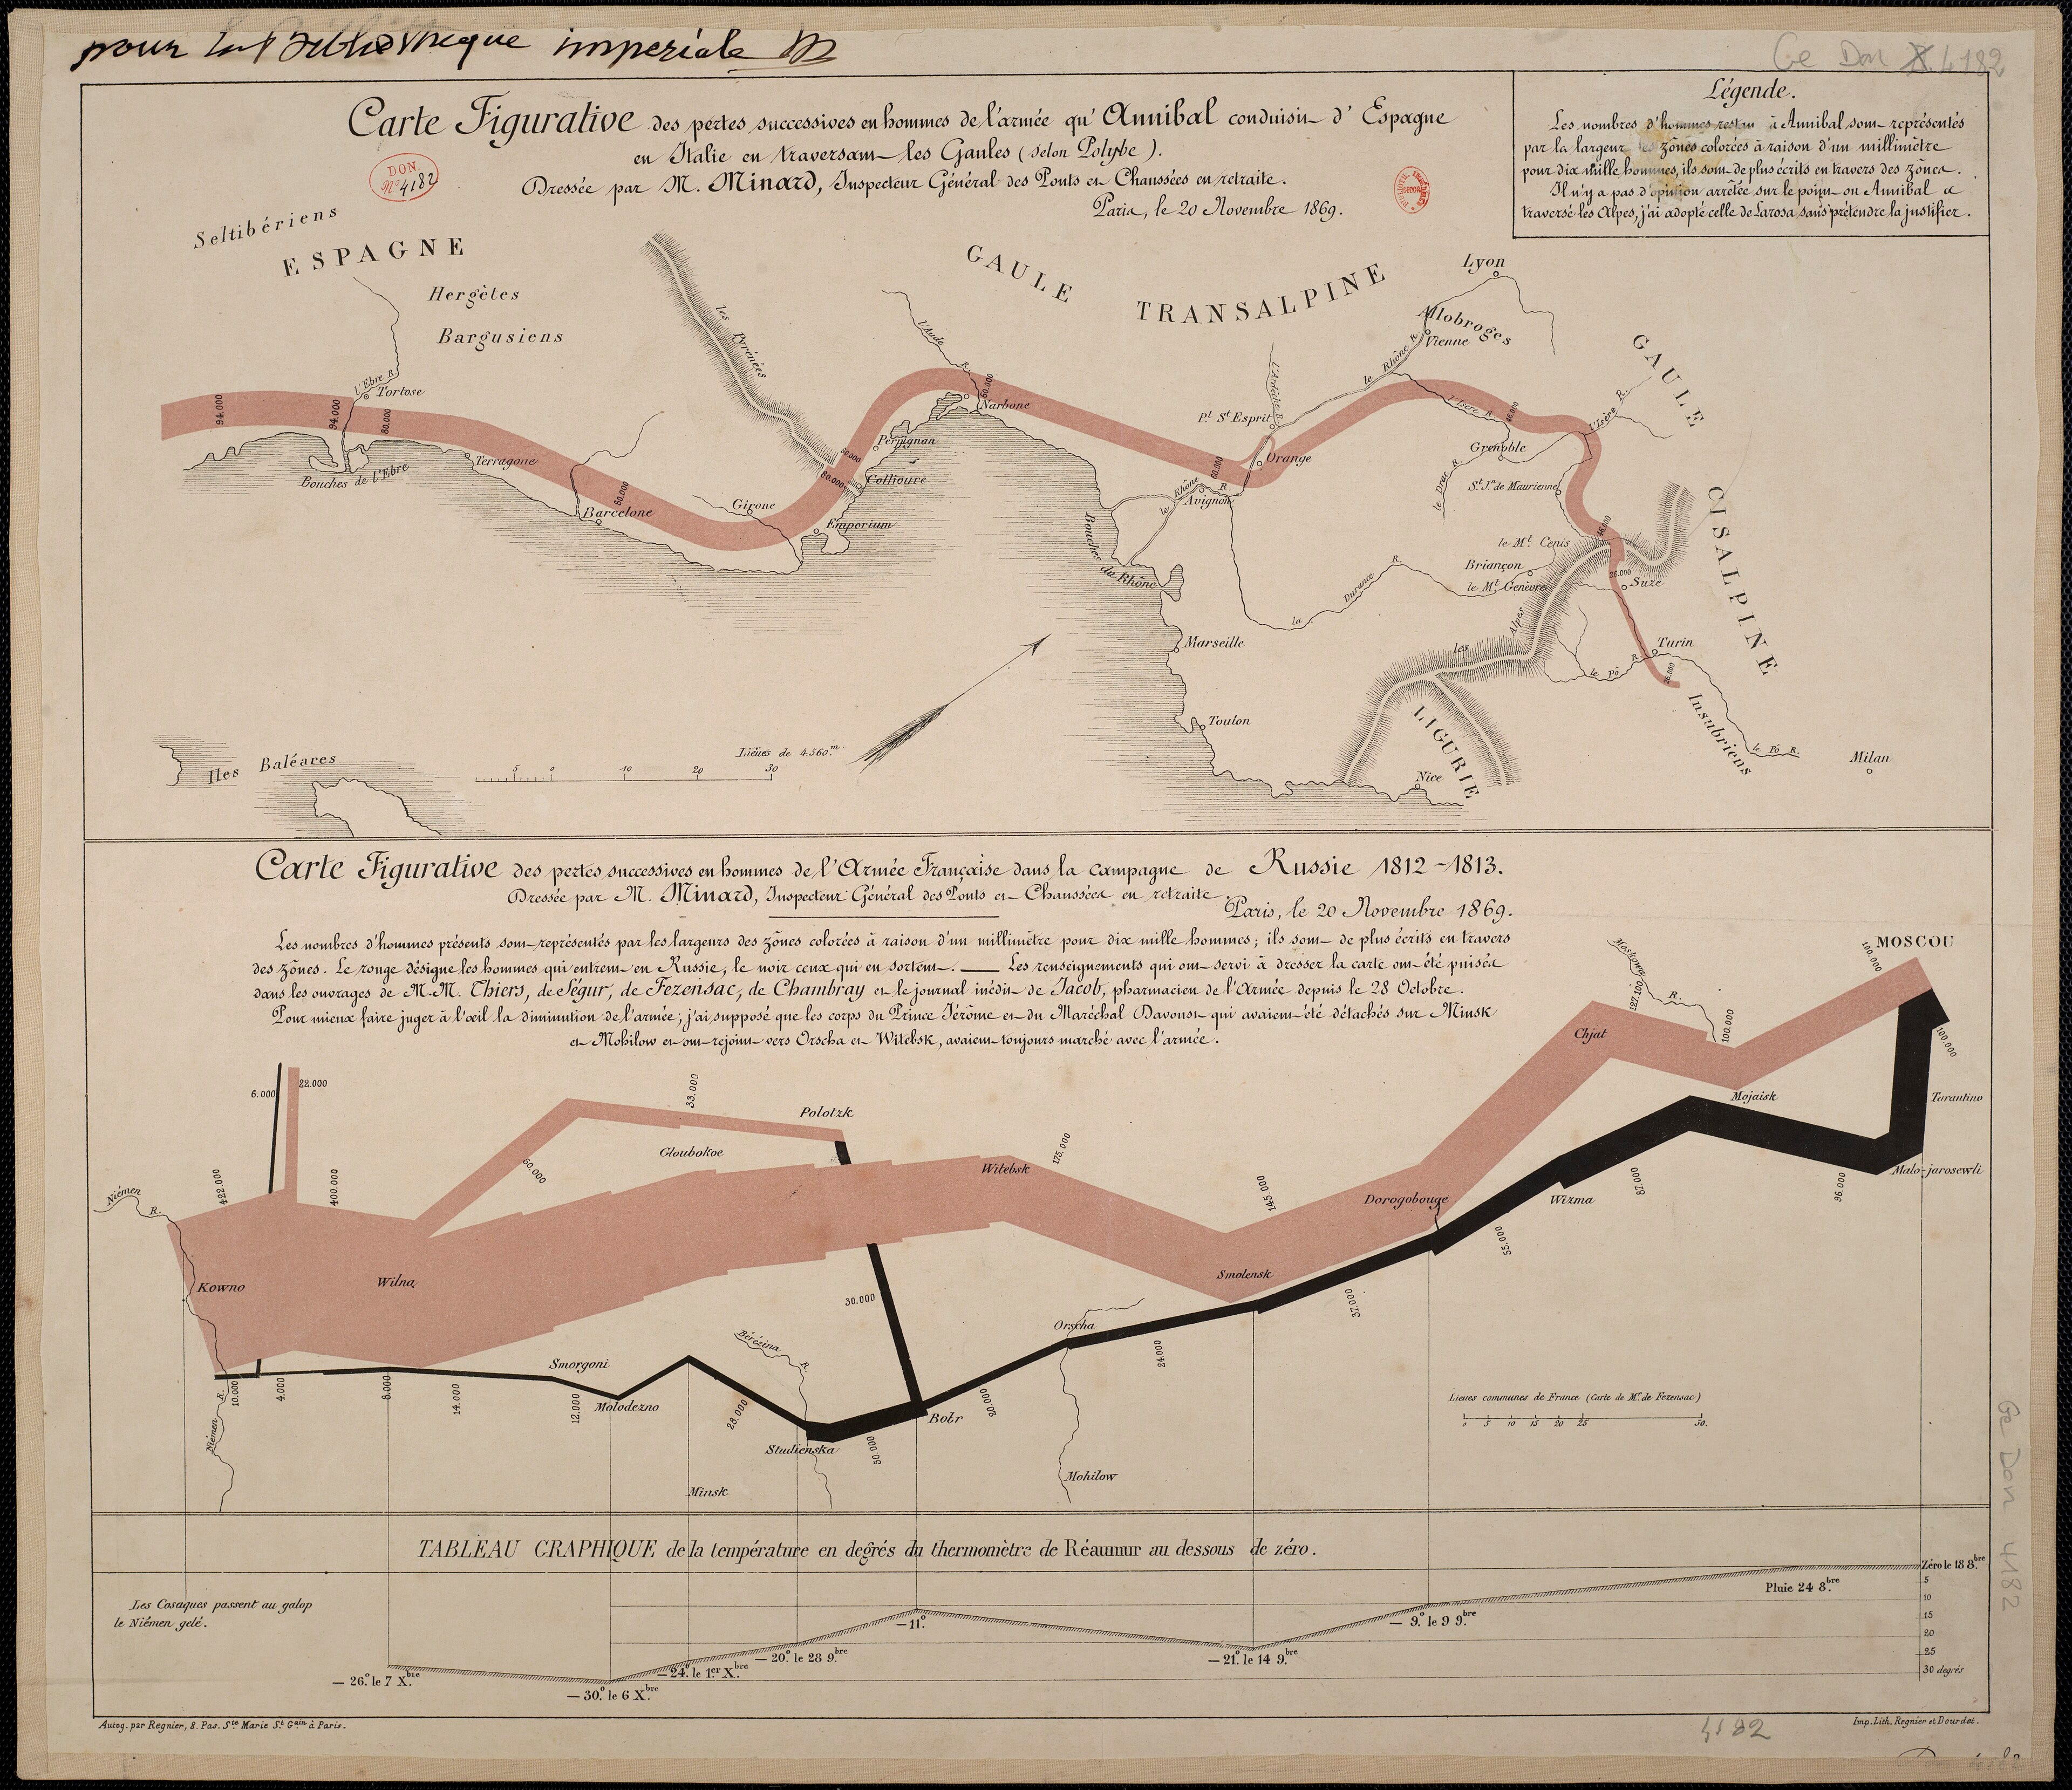 pour la Bibliothèque impériale M
Ce Don 4182
Carte Figurative des pertes successives en hommes de l'armée qu'Annibal conduisit d'Espagne
en Italie en traversant les Gaules (selon Polybe).
Dressée par M. Minard, Inspecteur Général des Ponts et Chaussées en retraite.
Paris, le 20 Novembre 1869.
DON.
Nº 4182
Légende.
Les nombres d'hommes restant à Annibal sont représentés
par la largeur des zônes colorées à raison d'un millimètre
pour dix mille hommes, ils sont de plus écrits en travers des zônes.
Il n'y a pas d'opinion arrêtée sur le point où Annibal a
traversé les Alpes, j'ai adopté celle de Larosa sans prétendre la justifier.
Seltibériens
ESPAGNE
Hergètes
Bargusiens
les Pyrénées
GAULE TRANSALPINE
Lyon
Allobroges
Vienne
GAULE CISALPINE
l'Aude R.
l'Ardèche R.
le Rhône R.
l'Isère R.
l'Isère R.
94.000
94.000
l'Ebre R.
Tortose
80.000
Bouches de l'Ebre
Terragone
80.000
Barcelone
Girone
Emporium
80.000
60.000
Collioure
Perpignan
60.000
Narbone
Pt. St Esprit
Orange
60.000
Avignon
le Rhône R.
Bouches du Rhône
46.000
Grenoble
le Drac R.
St. Jn. de Maurienne
46.000
le Mt. Cenis
Briançon
le Mt. Genèvre
26.000
Suze
la Durance R.
les Alpes
Turin
le Pô R.
26.000
Insubriens
le Pô R.
Milan
Marseille
Toulon
LIGURIE
Nice
Iles Baléares
Lieues de 4.560m
5 0 10 20 30
Carte Figurative des pertes successives en hommes de l'Armée Française dans la campagne de Russie 1812-1813.
Dressée par M. Minard, Inspecteur Général des Ponts et Chaussées en retraite.
Paris, le 20 Novembre 1869.
Les nombres d'hommes présents sont représentés par les largeurs des zônes colorées à raison d'un millimètre pour dix mille hommes; ils sont de plus écrits en travers
des zônes. Le rouge désigne les hommes qui entrent en Russie, le noir ceux qui en sortent. — Les renseignements qui ont servi à dresser la carte ont été puisés
dans les ouvrages de M.M. Thiers, de Ségur, de Fezensac, de Chambray et le journal inédit de Jacob, pharmacien de l'Armée depuis le 28 Octobre.
Pour mieux faire juger à l'œil la diminution de l'armée, j'ai supposé que les corps du Prince Jérôme et du Maréchal Davoust qui avaient été détachés sur Minsk
et Mohilow et ont rejoint vers Orscha et Witebsk, avaient toujours marché avec l'armée.
MOSCOU
100.000
Moskowa R.
127.100
100.000
Chjat
Mojaisk
100.000
Tarantino
Malo-jarosewli
6.000
22.000
33.000
Polotzk
Gloubokoe
60.000
Witebsk
175.000
422.000
400.000
Niémen R.
Kowno
Wilna
145.000
Dorogobouge
Smolensk
Wizma
55.000
87.000
96.000
30.000
Orscha
24.000
37.000
Bérézina R.
Smorgoni
Molodezno
10.000
4.000
8.000
14.000
12.000
28.000
Studienska
50.000
Bobr
20.000
Niémen R.
Minsk
Mohilow
Lieues communes de France (Carte de Mr. de Fezensac)
0 5 10 15 20 25 50.
Ge Don 4182
TABLEAU GRAPHIQUE de la température en degrés du thermomètre de Réaumur au dessous de zéro.
Zéro le 18 8bre
5
10
15
20
25
30 degrés
Pluie 24 8bre
Les Cosaques passent au galop
le Niémen gelé.
— 9.° le 9 9bre
— 11.°
— 21.° le 14 9bre
— 20.° le 28 9bre
— 24.° le 1er Xbre
— 30.° le 6 Xbre
— 26.° le 7 Xbre
Autog. par Regnier, 8. Pas. Ste Marie St. Gain à Paris.
Imp. Lith. Regnier et Dourdet.
4182